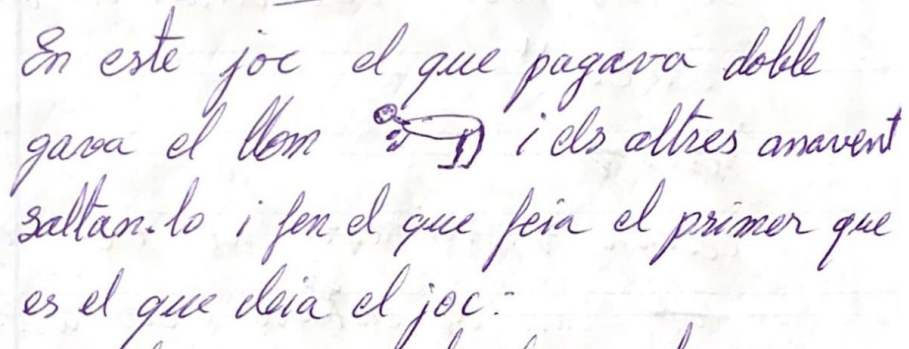 En este joc el que pagava doble
gava el llom i els altres anavent
saltan-lo i fen el que feia el primer que
es el que deia el joc: